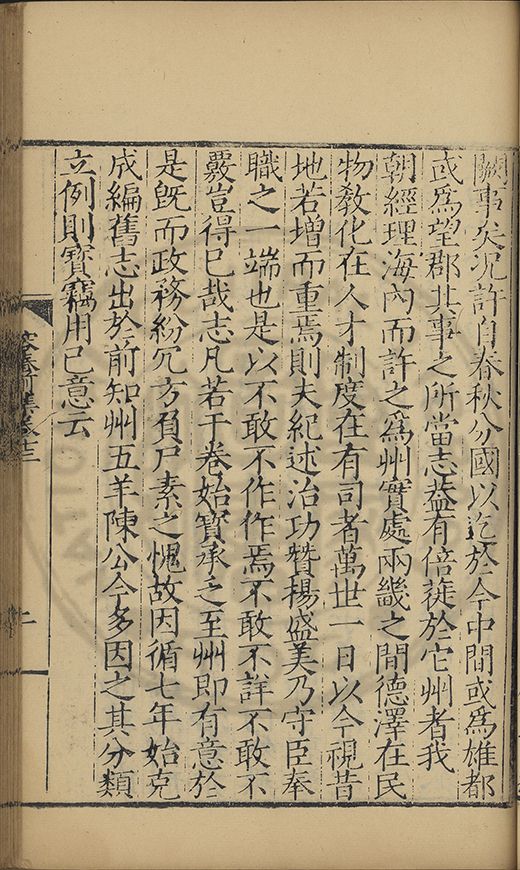 闕事矣况許自春秋分國以迄於今中間或爲雄都
或爲望郡其事之所當志葢有倍蓰於它州者我
朝經理海內而許之爲州實處兩畿之間德澤在民
物教化在人才制度在有司者萬世一日以今視昔
地若增而重焉則夫紀述治功贊楊盛美乃守臣奉
職之一端也是以不敢不作作焉不敢不詳不敢不
覈豈得已哉志凡若干卷始寶承乏至州即有意於
是既而政務紛冗方負尸素之愧故因循七年始克
成編舊志出於前知州五羊陳公今多因之其分類
立例則寶竊用己意云
容春前集卷十三
二